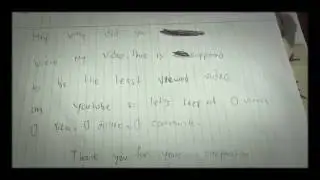 Hey why did you
view my video, this is
to be the least viewed video
on youtube so let's keep at 0 views
0 likes, 0 comments.
Thank you for your cooperation